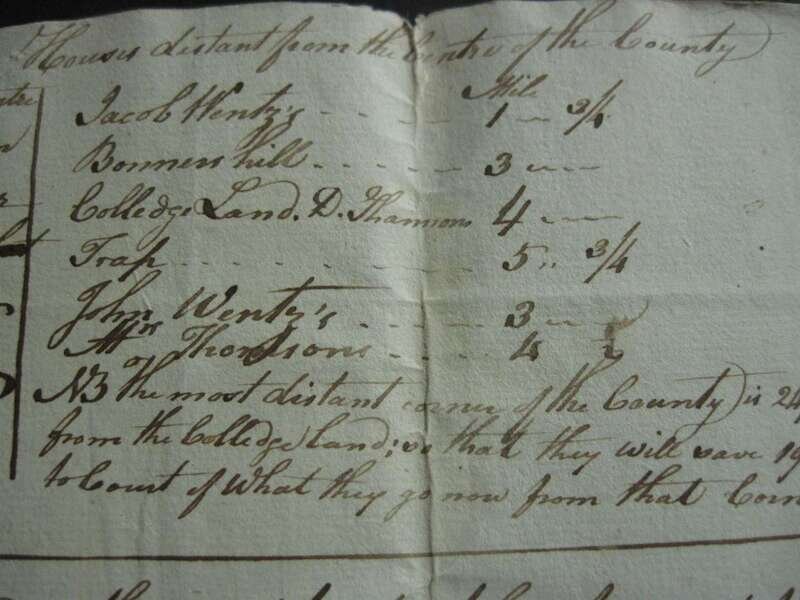 Houses distant from the Centre of the County
Mile
Jacob Wentz's - - - - - 1 — 3/4
Bonners hill - - - - - 3 —
Colledge Land. D. Thomsons 4 —
Trap - - - - - - - - - 5 " 3/4
John Wentz's - - - - - 3 —
Thomsons - - - 4
NB the most distant corner of the County is 24
from the Colledge land; so that they will save 19
to Court of What they go now from that Corn